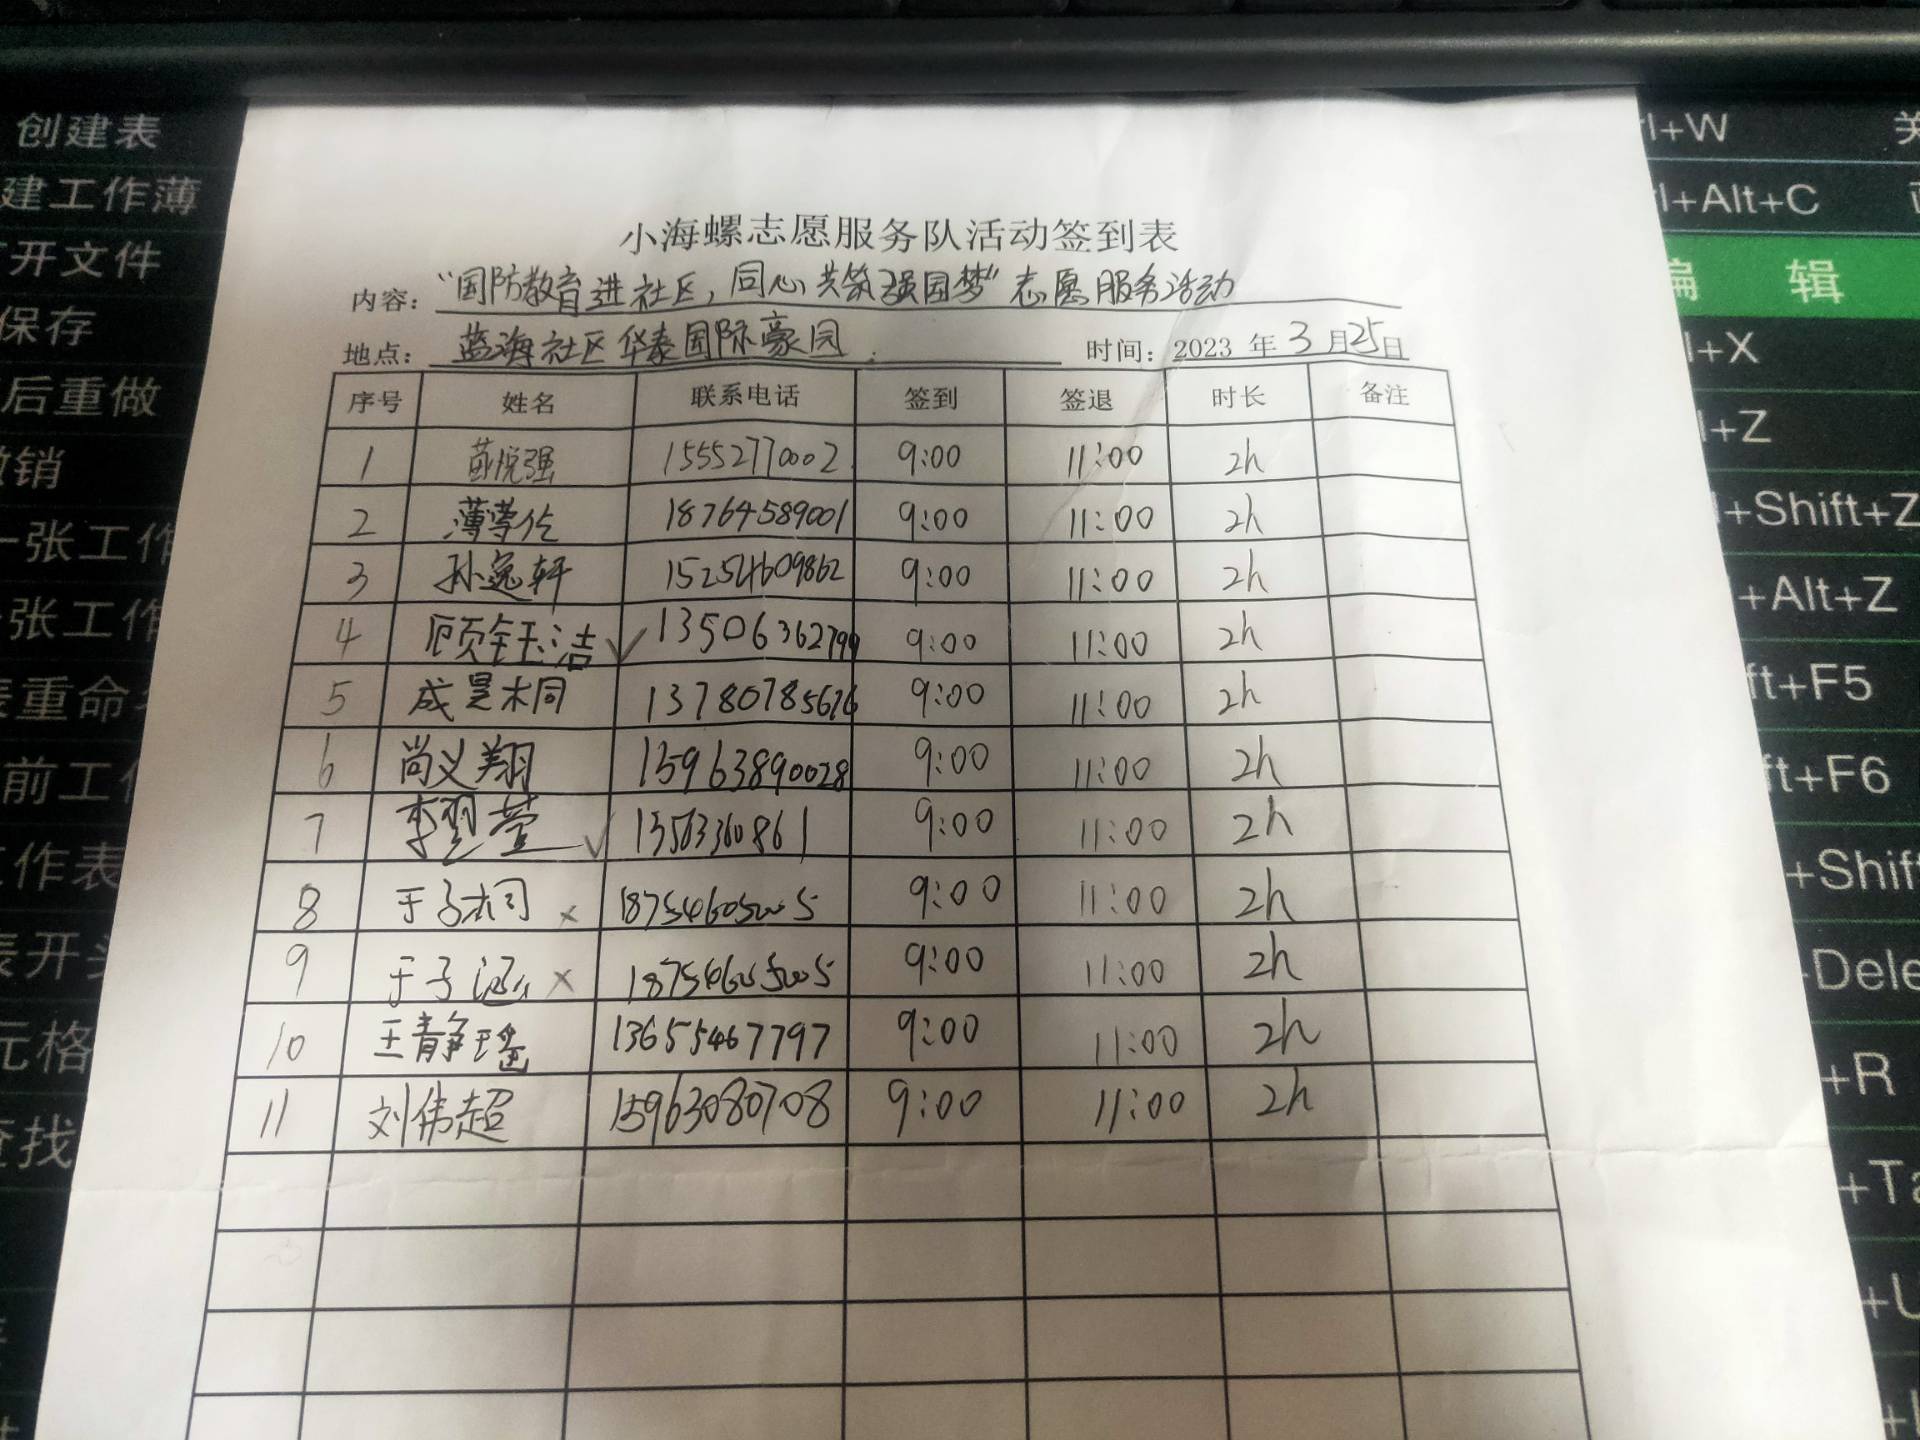 小海螺志愿服务队活动签到表
内容：“国防教育进社区，同心共筑强国梦”志愿服务活动
地点：蓝海社区华泰国际豪园 时间：2023 年 3 月 25 日
序号 姓名 联系电话 签到 签退 时长 备注
1 悦强 15552770002 9:00 11:00 2h
2 薄 18764589001 9:00 11:00 2h
3 孙逸轩 15254609862 9:00 11:00 2h
4 顾钰洁 ✓ 13506362799 9:00 11:00 2h
5 成昊桐 13780785676 9:00 11:00 2h
6 尚义翔 15963890028 9:00 11:00 2h
7 李翌萱 ✓ 9:00 11:00 2h
8 于子桐 × 18754605005 9:00 11:00 2h
9 于子涵 × 18754605005 9:00 11:00 2h
10 王静瑶 13655467797 9:00 11:00 2h
11 刘伟超 15963080708 9:00 11:00 2h
创建表
建工作薄
开文件
保存
后重做
销
一张工作
张工作
表重命名
前工作
工作表
表开头
元格
查找
l+W 关
l+Alt+C
编 辑
l+X
l+Z
l+Shift+Z
+Alt+Z
ft+F5
ft+F6
+Shift
+Dele
+R
+Ta
+U